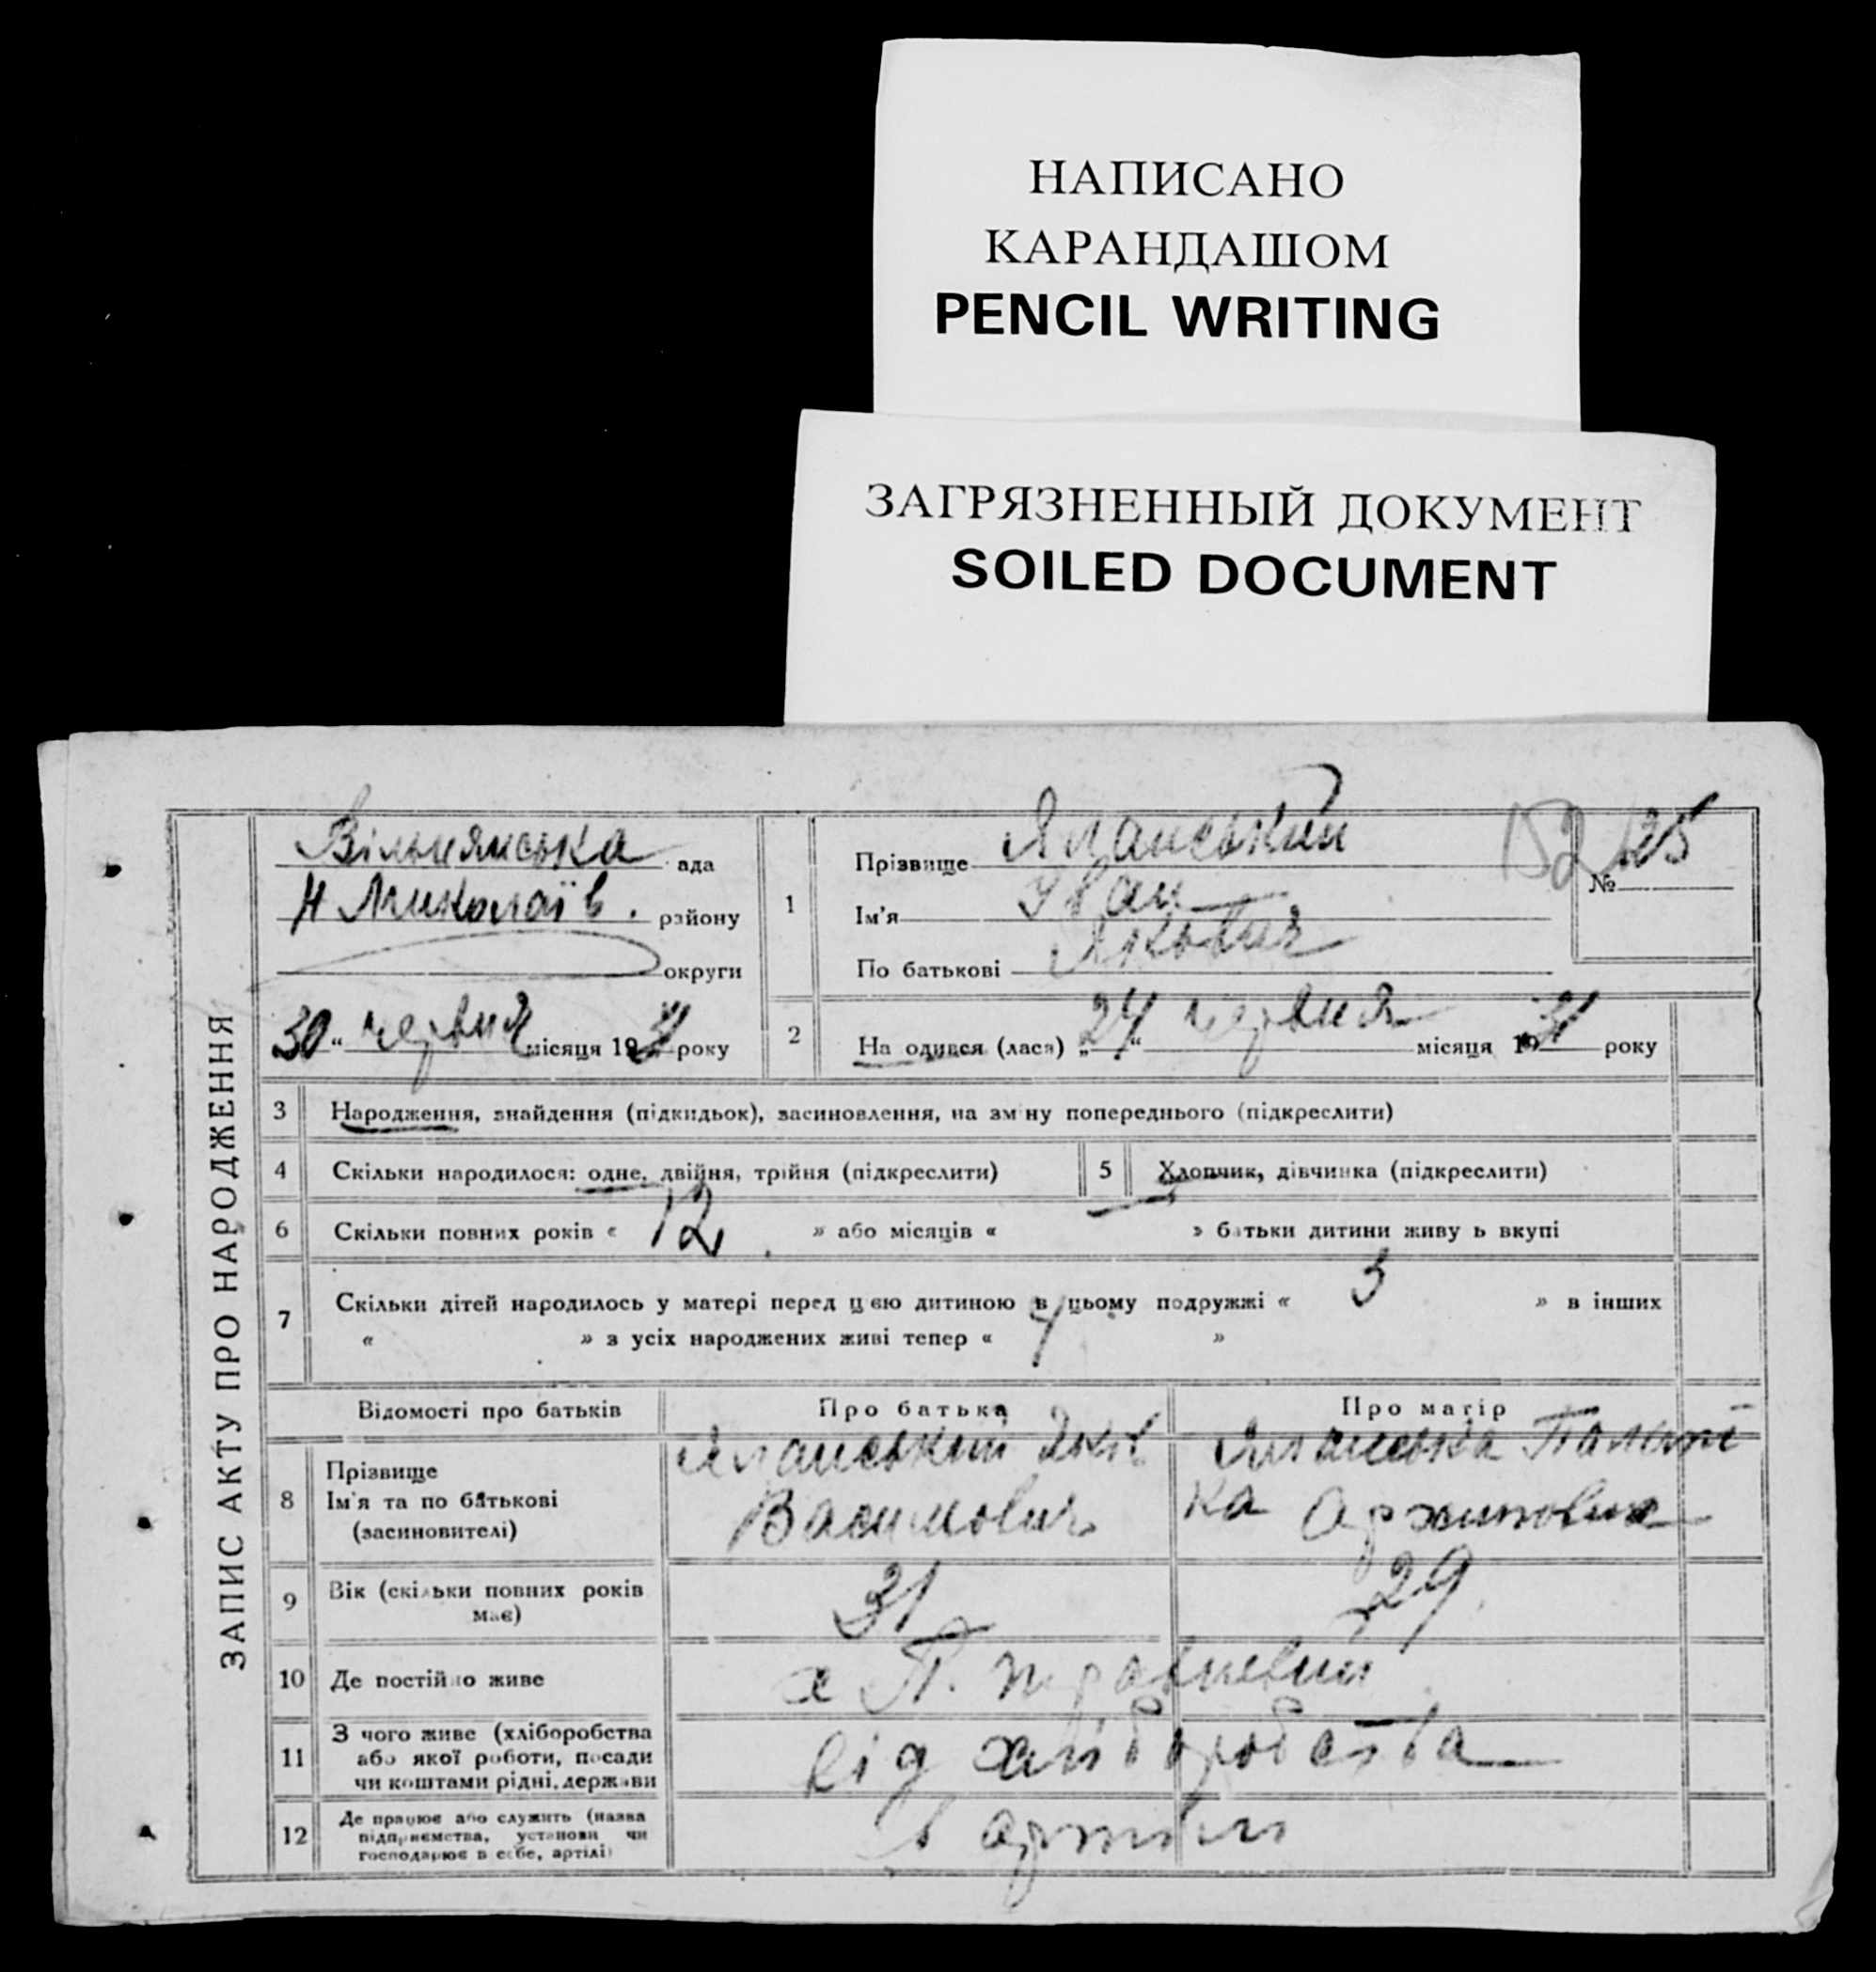 НАПИСАНО
КАРАНДАШОМ
PENCIL WRITING
ЗАГРЯЗНЕННЫЙ ДОКУМЕНТ
SOILED DOCUMENT
ЗАПИС АКТУ ПРО НАРОДЖЕННЯ
Вільнянська ада
Н Миколаїв. району
округи
30 “ червня місяця 1931 року
1
Прізвище
Ім’я Іван
По батькові Якович
152 №
2 На одився (лася) „24“ червня місяця 1931 року
3 Народження, знайдення (підкидьок), засиновлення, на зм ну попереднього (підкреслити)
4 Скільки народилося: одне, двійня, трійня (підкреслити) 5 Хлопчик, дівчинка (підкреслити)
6 Скільки повних років « 12. » або місяців « » батьки дитини живу ь вкупі
7 Скільки дітей народилось у матері перед цією дитиною в цьому подружжі « 3 » в інших
« » з усіх народжених живі тепер « 4 »
Відомості про батьків Про батька Про матір
8 Прізвище
Ім’я та по батькові Васильович
(засиновителі)
9 Вік (скільки повних років 31 29
має)
10 Де постійно живе
11 З чого живе (хліборобства
або якої роботи, посади від хліборобства
чи коштами рідні, держави
12 Де працює або служить (назва
підприємства, установи чи в артілі
господарює в себе, артілі)